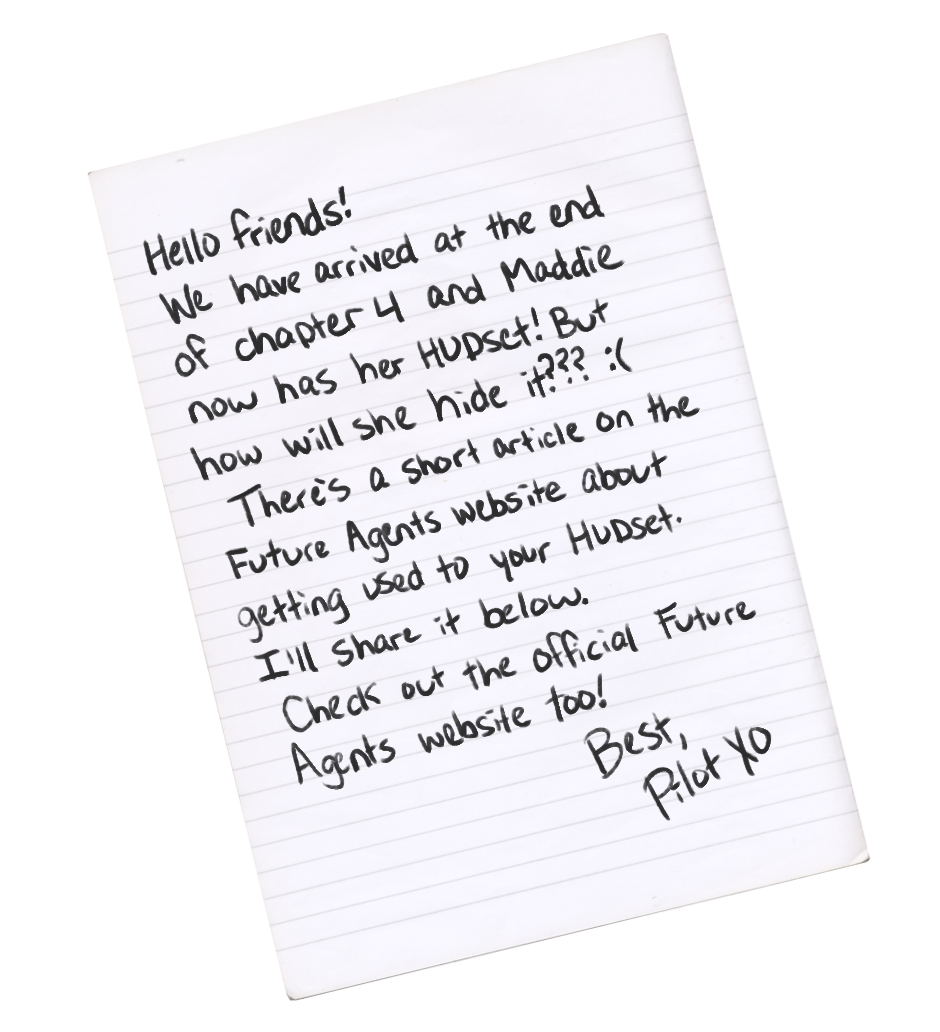 Hello friends!
We have arrived at the end
of chapter 4 and Maddie
now has her HUDset! But
how will she hide it??? :(
There's a short article on the
Future Agents website about
getting used to your HUDset.
I'll share it below.
Check out the official Future
Agents website too!
Best,
Pilot XO